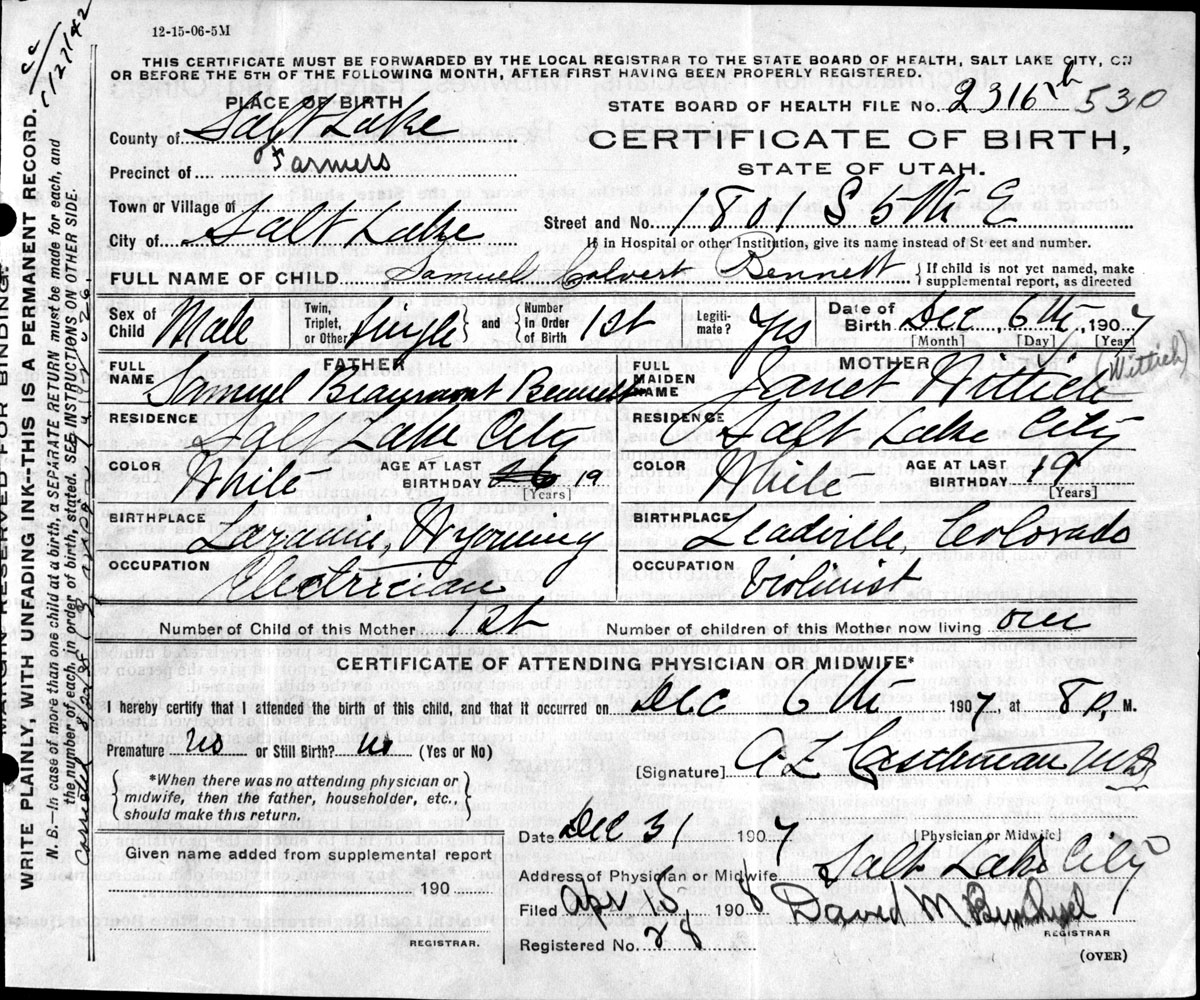 12-15-06-5M
THIS CERTIFICATE MUST BE FORWARDED BY THE LOCAL REGISTRAR TO THE STATE BOARD OF HEALTH, SALT LAKE CITY, ON
OR BEFORE THE 5TH OF THE FOLLOWING MONTH, AFTER FIRST HAVING BEEN PROPERLY REGISTERED.
PLACE OF BIRTH
County of Salt Lake
Precinct of Farmers
Town or Village of
City of Salt Lake
STATE BOARD OF HEALTH FILE No. 2316 530
CERTIFICATE OF BIRTH,
STATE OF UTAH.
Street and No. 1801 S 5th E
If in Hospital or other Institution, give its name instead of St eet and number.
FULL NAME OF CHILD Samuel Colvert Bennett { If child is not yet named, make supplemental report, as directed
Sex of Child Male Twin, Triplet, or Other Single } and { Number in Order of Birth 1st Legitimate? Yes Date of Birth Dec 6th, 1907
[Month] [Day] [Year]
FATHER
FULL NAME Samuel Beaumont Bennett
RESIDENCE Salt Lake City
COLOR White AGE AT LAST BIRTHDAY 19 [Years]
BIRTHPLACE Laramie, Wyoming
OCCUPATION Electrician
MOTHER
FULL MAIDEN NAME Janet Wittich (Wittich)
RESIDENCE Salt Lake City
COLOR White AGE AT LAST BIRTHDAY 19 [Years]
BIRTHPLACE Leadville, Colorado
OCCUPATION Violinist
Number of Child of this Mother 1st Number of children of this Mother now living one
CERTIFICATE OF ATTENDING PHYSICIAN OR MIDWIFE*
I hereby certify that I attended the birth of this child, and that it occurred on Dec 6th 1907, at 8 P. M.
Premature no or Still Birth? no (Yes or No)
{ *When there was no attending physician or
midwife, then the father, householder, etc.,
should make this return. }
Given name added from supplemental report
190
REGISTRAR.
[Signature] MD
[Physician or Midwife]
Date Dec 31 1907
Address of Physician or Midwife Salt Lake City
Filed Apr 15, 1908 David M
REGISTRAR
Registered No. 28
(OVER)
MARGIN RESERVED FOR BINDING.
WRITE PLAINLY, WITH UNFADING INK—THIS IS A PERMANENT RECORD.
N. B.—In case of more than one child at a birth, a SEPARATE RETURN must be made for each, and
the number of each, in order of birth, stated. SEE INSTRUCTIONS ON OTHER SIDE.